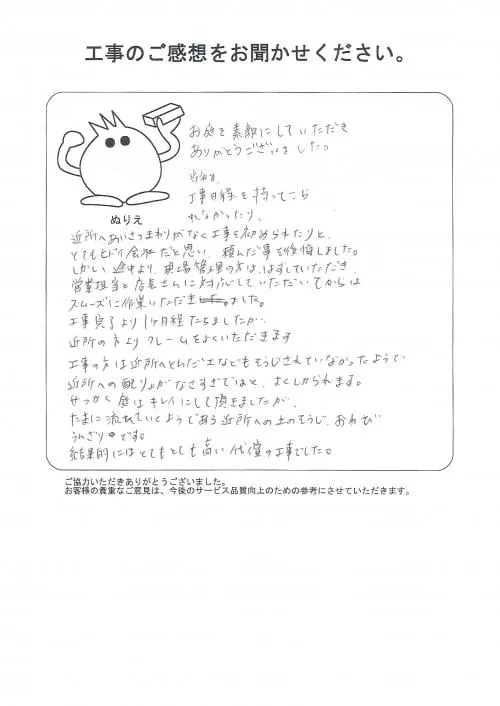 工事のご感想をお聞かせください。
お庭を素敵にしていただき
ありがとうございました。
当初は、
工事日程を持ってこら
れなかったり、
ぬりえ
近所へあいさつまわりがなく工事を始められたりと、
とてもヒドイ会社だと思い、頼んだ事を後悔しました。
しかし、途中より、現場管理の方は、はずしていただき、
営業担当と店長さんに対応していただいてからは
スムーズに作業いただきました。
工事完了より1ヶ月程たちましたが、
近所の方よりクレームをよくいただきます
工事の方は近所へとんだ土などもそうじされていなかったようで
近所への配りょがなさすぎではと、よくしかられます。
せっかく庭はキレイにして頂きましたが、
たまに流れていくようである近所への土のそうじ、おわび
うんざりです。
結果的にはとてもとても高い代償の工事でした。
ご協力いただきありがとうございました。
お客様の貴重なご意見は、今後のサービス品質向上のための参考にさせていただきます。